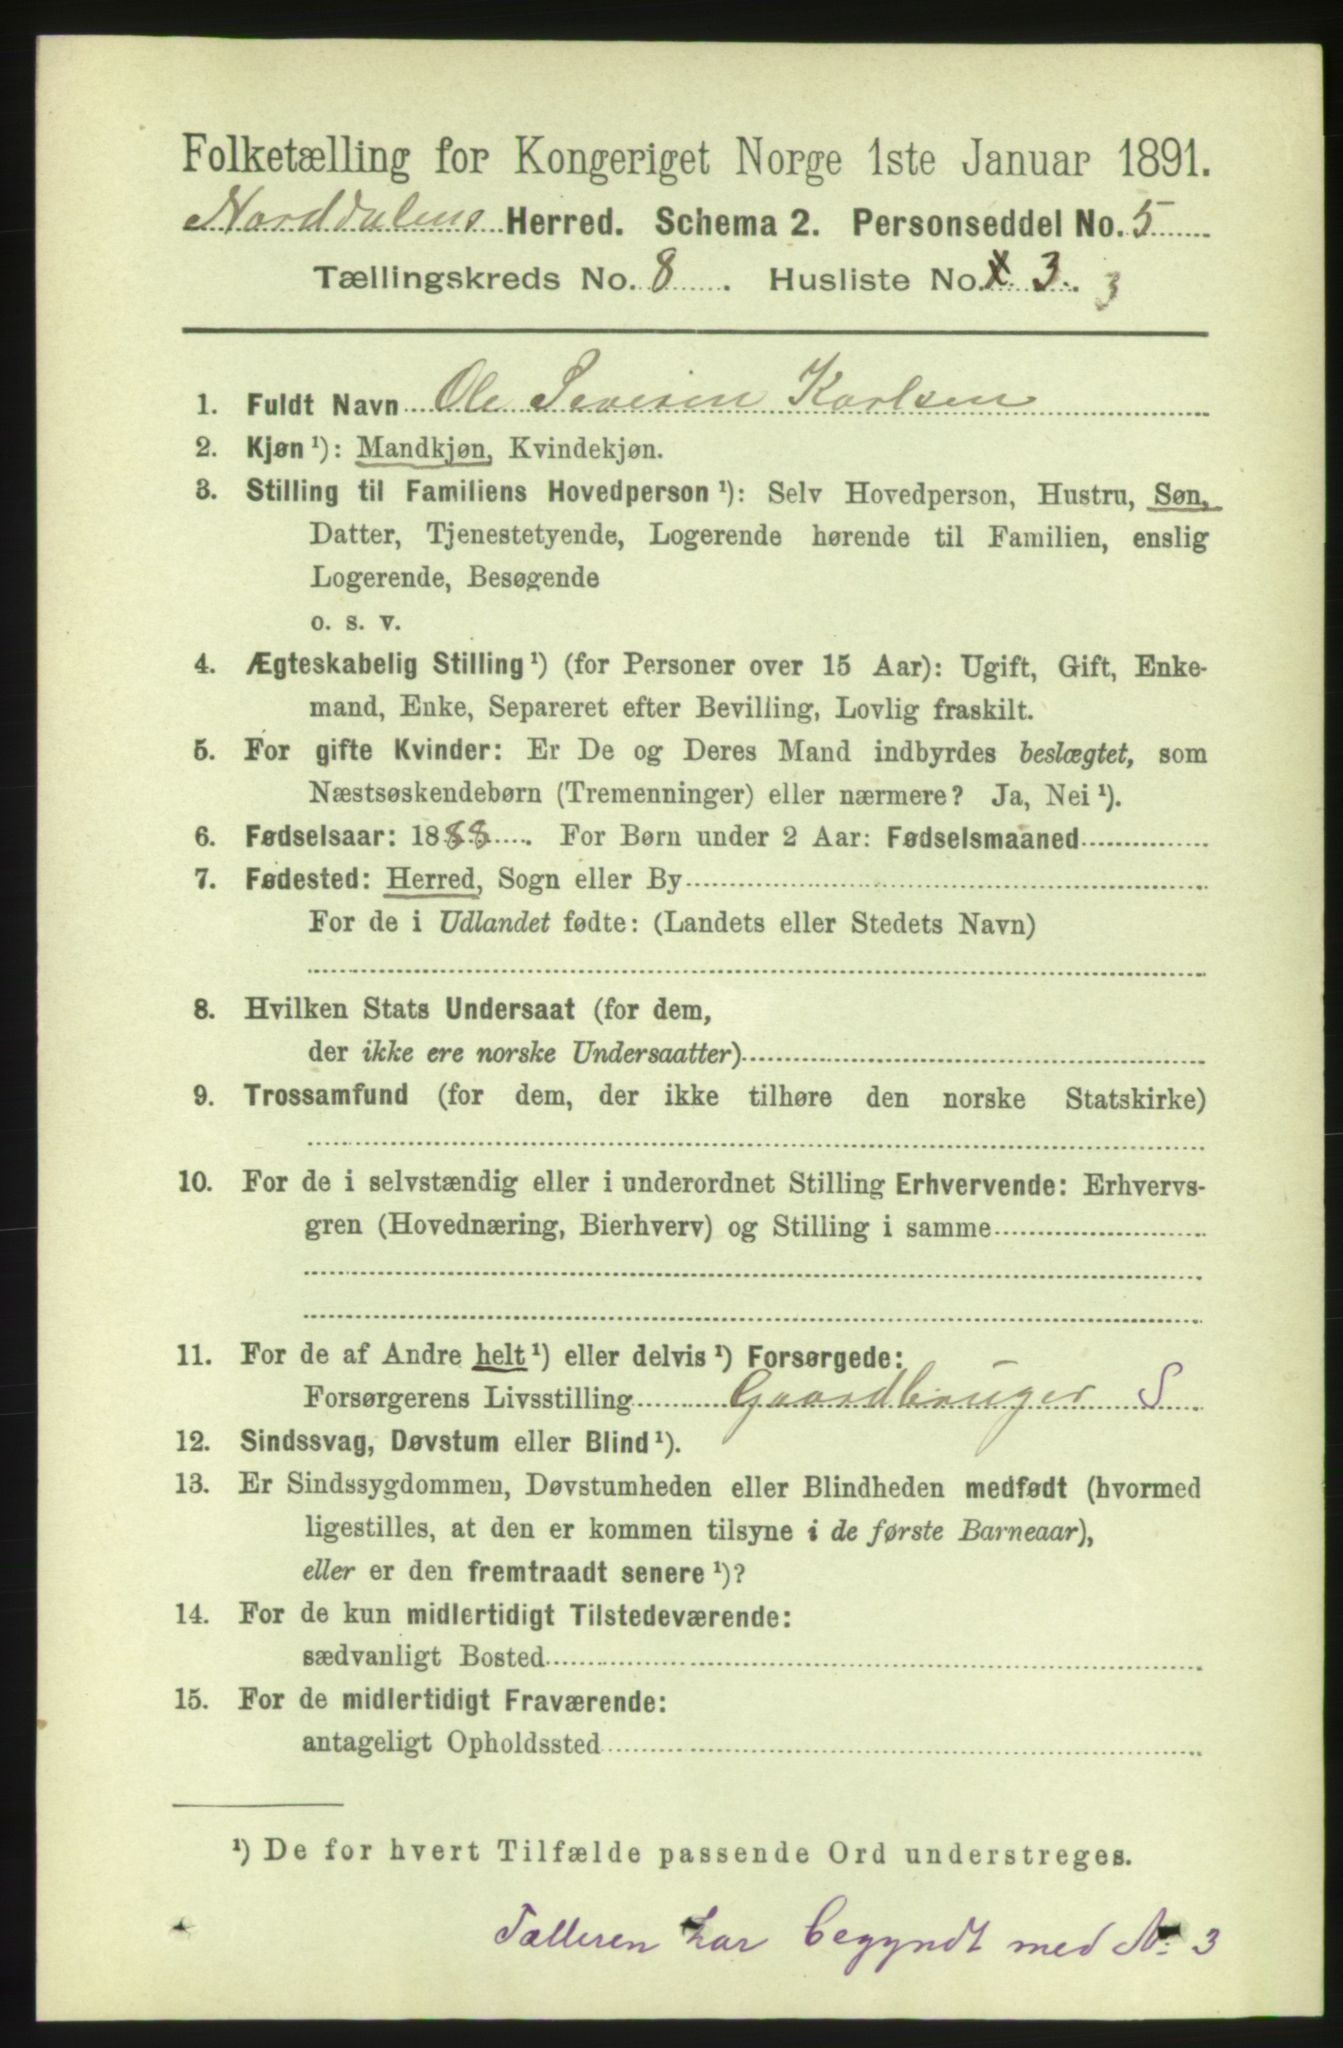 Folketælling for Kongeriget Norge 1ste Januar 1891.
Norddalens Herred. Schema 2. Personseddel No. 5
Tællingskreds No. 8. Husliste No. 3. 3
1. Fuldt Navn Ole Severin Karlsen
2. Kjøn ¹): Mandkjøn, Kvindekjøn.
3. Stilling til Familiens Hovedperson ¹): Selv Hovedperson, Hustru, Søn,
Datter, Tjenestetyende, Logerende hørende til Familien, enslig
Logerende, Besøgende
o. s. v.
4. Ægteskabelig Stilling ¹) (for Personer over 15 Aar): Ugift, Gift, Enke-
mand, Enke, Separeret efter Bevilling, Lovlig fraskilt.
5. For gifte Kvinder: Er De og Deres Mand indbyrdes beslægtet, som
Næstsøskendebørn (Tremenninger) eller nærmere? Ja, Nei ¹).
6. Fødselsaar: 1888. For Børn under 2 Aar: Fødselsmaaned
7. Fødested: Herred, Sogn eller By
For de i Udlandet fødte: (Landets eller Stedets Navn)
8. Hvilken Stats Undersaat (for dem,
der ikke ere norske Undersaatter)
9. Trossamfund (for dem, der ikke tilhøre den norske Statskirke)
10. For de i selvstændig eller i underordnet Stilling Erhvervende: Erhvervs-
gren (Hovednæring, Bierhverv) og Stilling i samme
11. For de af Andre helt ¹) eller delvis ¹) Forsørgede:
Forsørgerens Livsstilling Gaardbruger S
12. Sindssvag, Døvstum eller Blind ¹).
13. Er Sindssygdommen, Døvstumheden eller Blindheden medfødt (hvormed
ligestilles, at den er kommen tilsyne i de første Barneaar),
eller er den fremtraadt senere ¹)?
14. For de kun midlertidigt Tilstedeværende:
sædvanligt Bosted
15. For de midlertidigt Fraværende:
antageligt Opholdssted
¹) De for hvert Tilfælde passende Ord understreges.
Tælleren har begyndt med No. 3